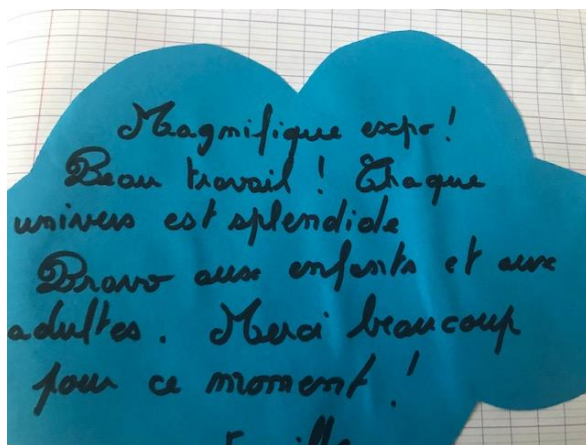 Magnifique expo!
Beau travail! Chaque
univers est splendide
Bravo aux enfants et aux
adultes. Merci beaucoup
pour ce moment!